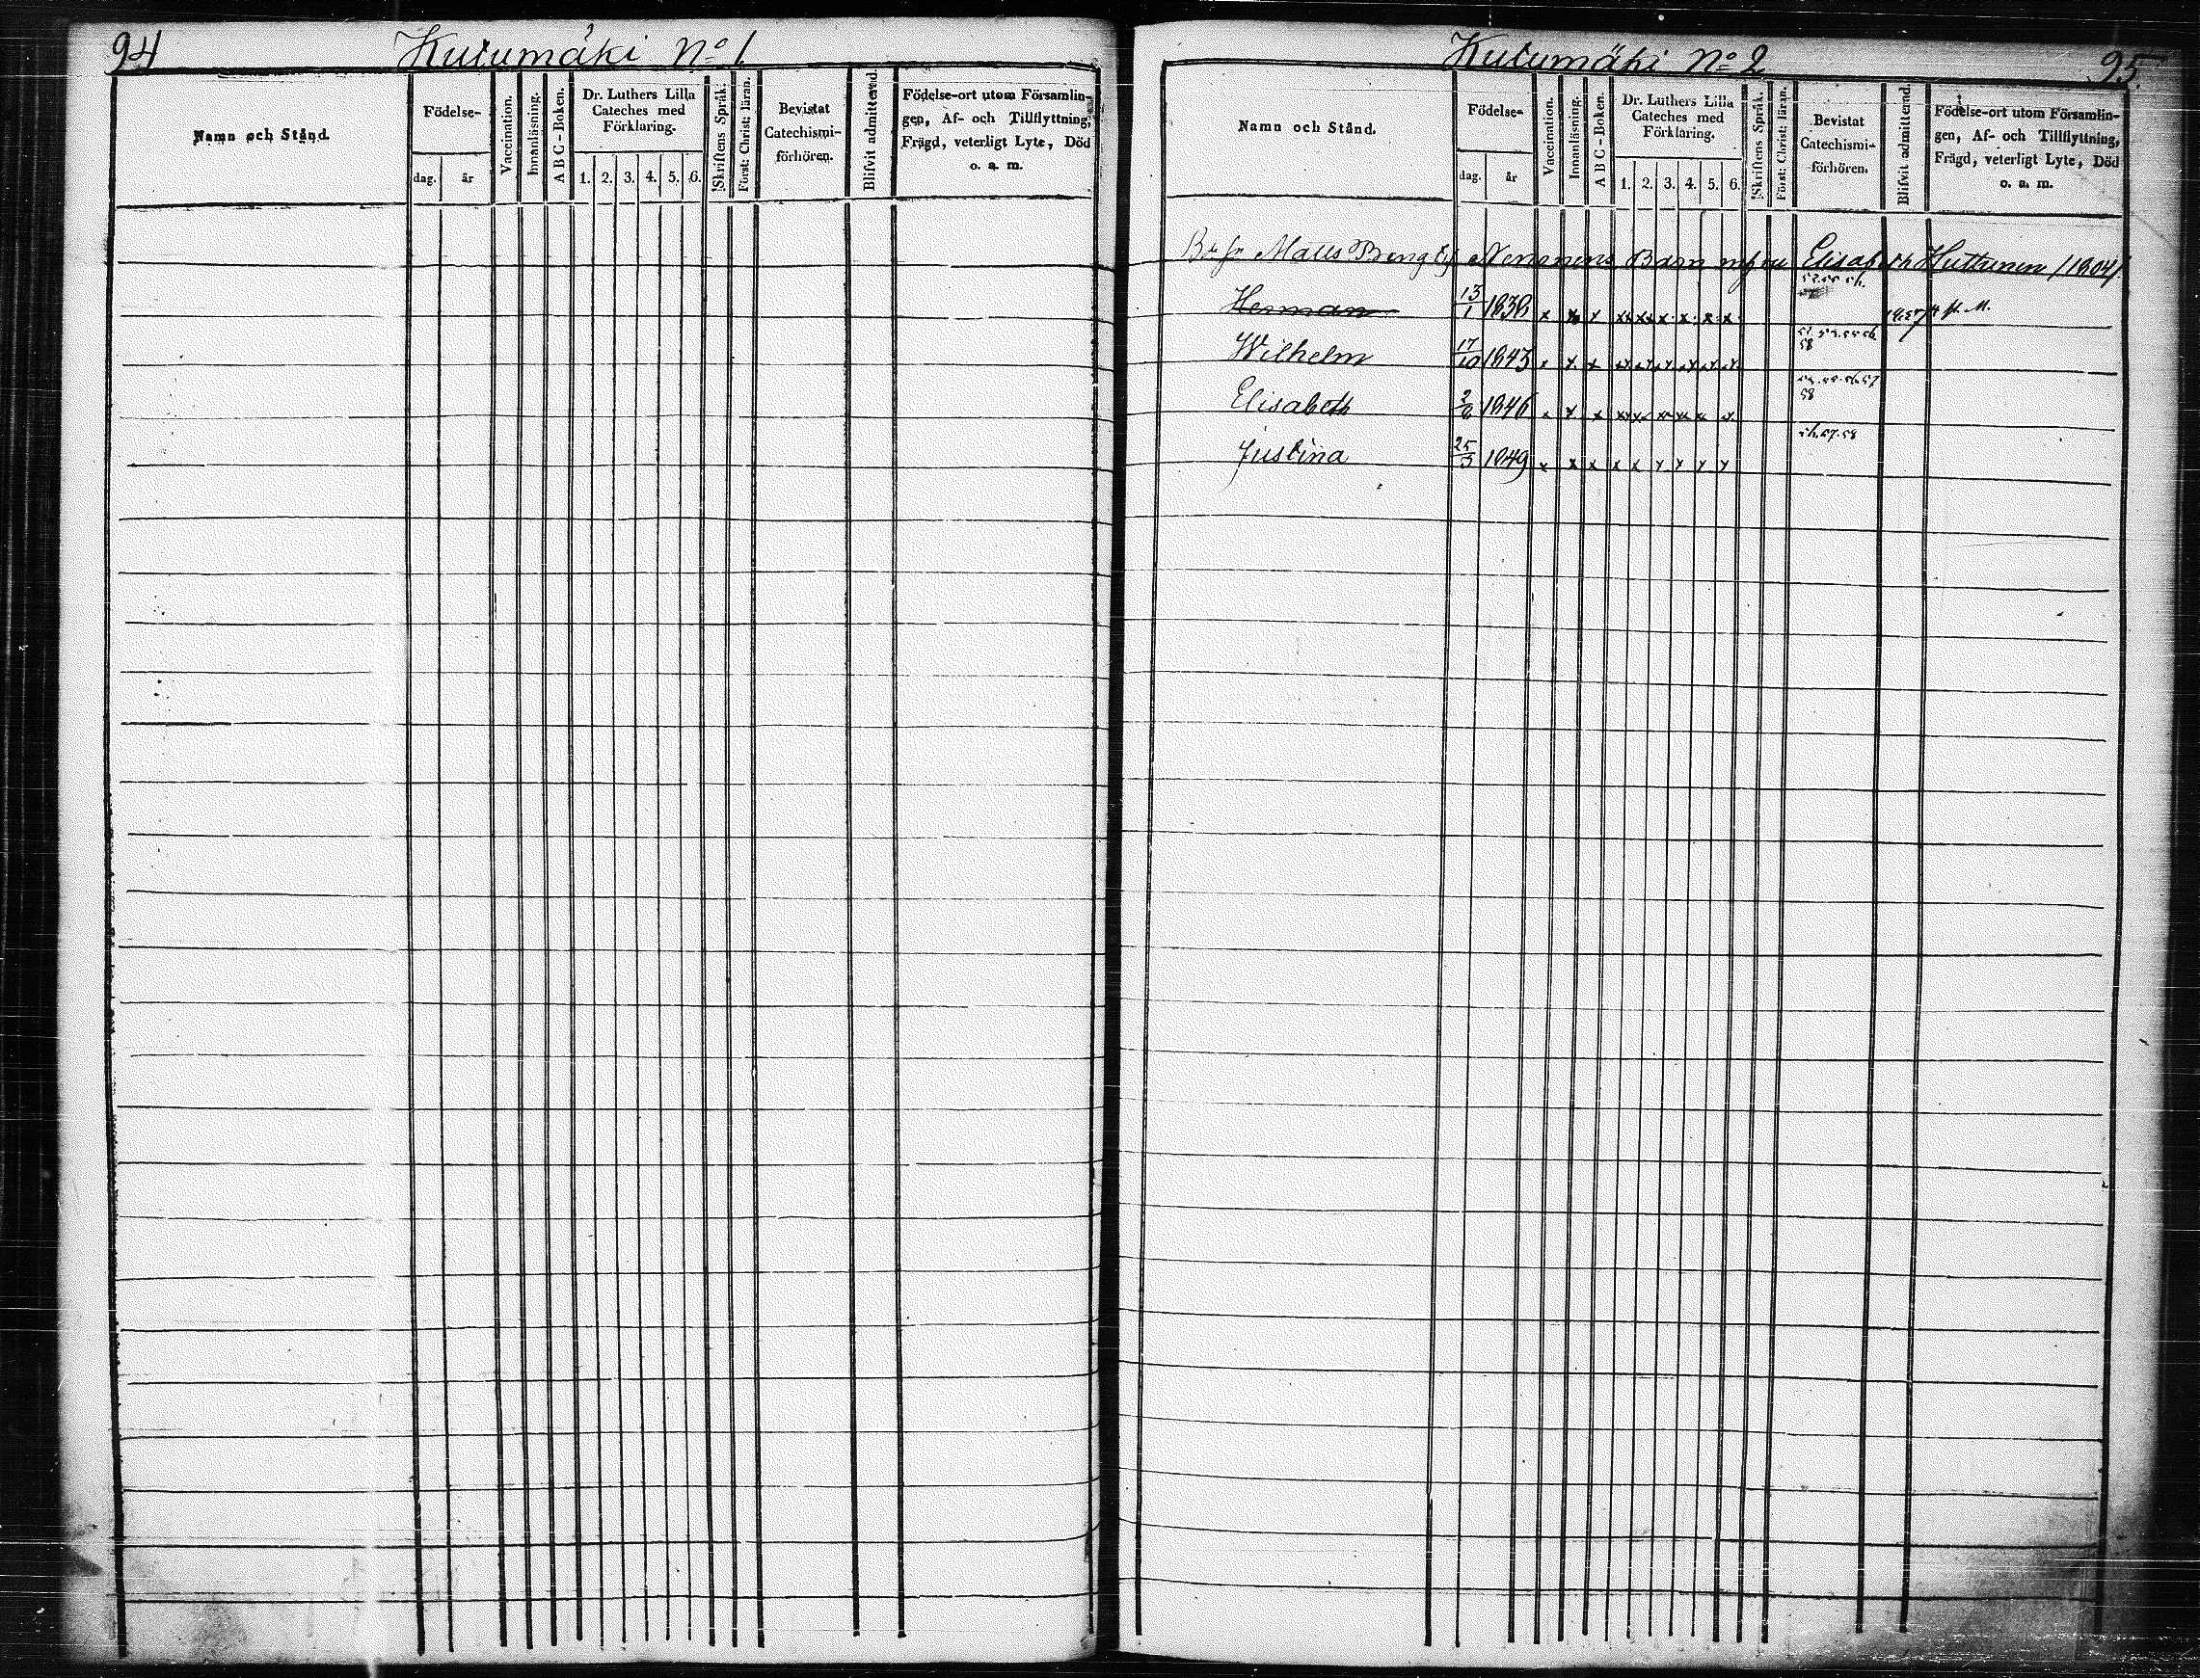 94
Kutumäki No 1
Namn och Stånd.
Födelse-
dag.
år
Vaccination.
Innanläsning.
A B C - Boken.
Dr. Luthers Lilla
Cateches med
Förklaring.
1. 2. 3. 4. 5. 6.
Skriftens Språk.
Först: Christ: läran.
Bevistat
Catechismi-
förhören.
Blifvit admitterad.
Födelse-ort utom Församlin-
gen, Af- och Tillflyttning,
Frägd, veterligt Lyte, Död
o. a. m.
Kutumäki No 2
95.
Namn och Stånd.
Födelse-
dag.
år
Vaccination.
Innanläsning.
A B C - Boken.
Dr. Luthers Lilla
Cateches med
Förklaring.
1. 2. 3. 4. 5. 6.
Skriftens Språk.
Först: Christ: läran.
Bevistat
Catechismi-
förhören.
Blifvit admitterad.
Födelse-ort utom Församlin-
gen, Af- och Tillflyttning,
Frägd, veterligt Lyte, Död
o. a. m.
Matts Barn Elisabeth Huttunen /1804/.
Herman 13/1 1838 x x x x x x x x
Wilhelm 17/10 1843 x x x x x x x x x
58
Elisabeth 1846 x x x x x x x x x
58
Justina 25/3 1849 x x x x x x x x x 57.58